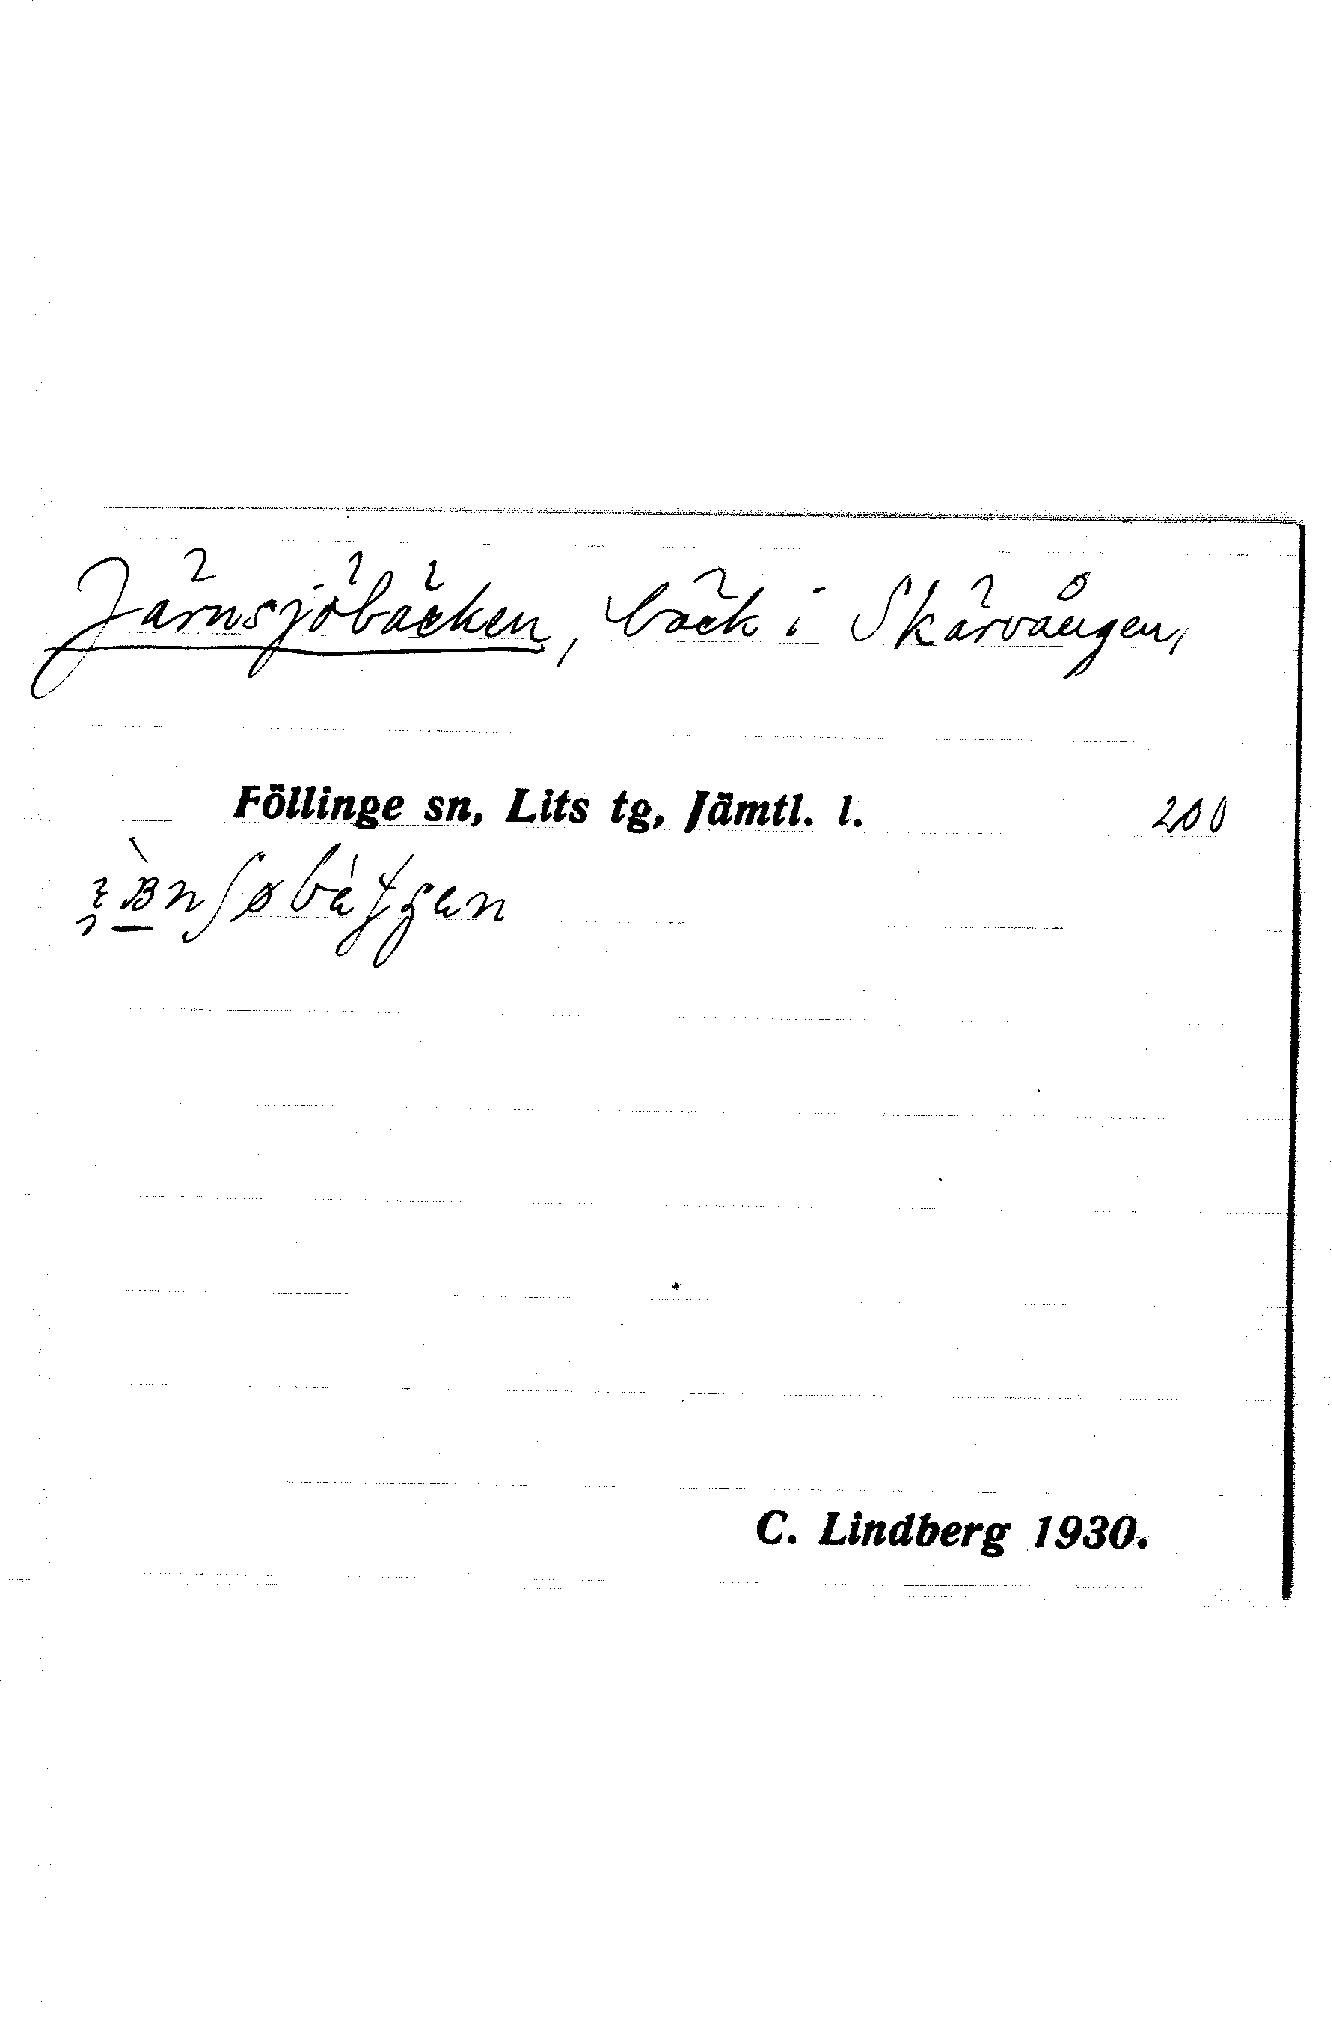 Järnsjöbäcken, bäck i Skärvången,
Föllinge sn, Lits tg, Jämtl. l. 200
C. Lindberg 1930.